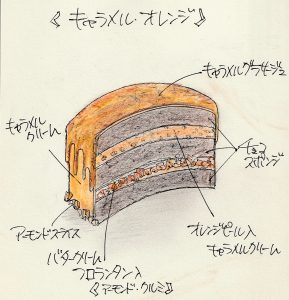 《キャラメル・オレンジ》
キャラメルグラサージュ
キャラメル
クリーム
チョコ
スポンジ
アーモンドスライス
バタークリーム
フロランタン入
《アーモンド・クルミ》
オレンジピール入
キャラメルクリーム